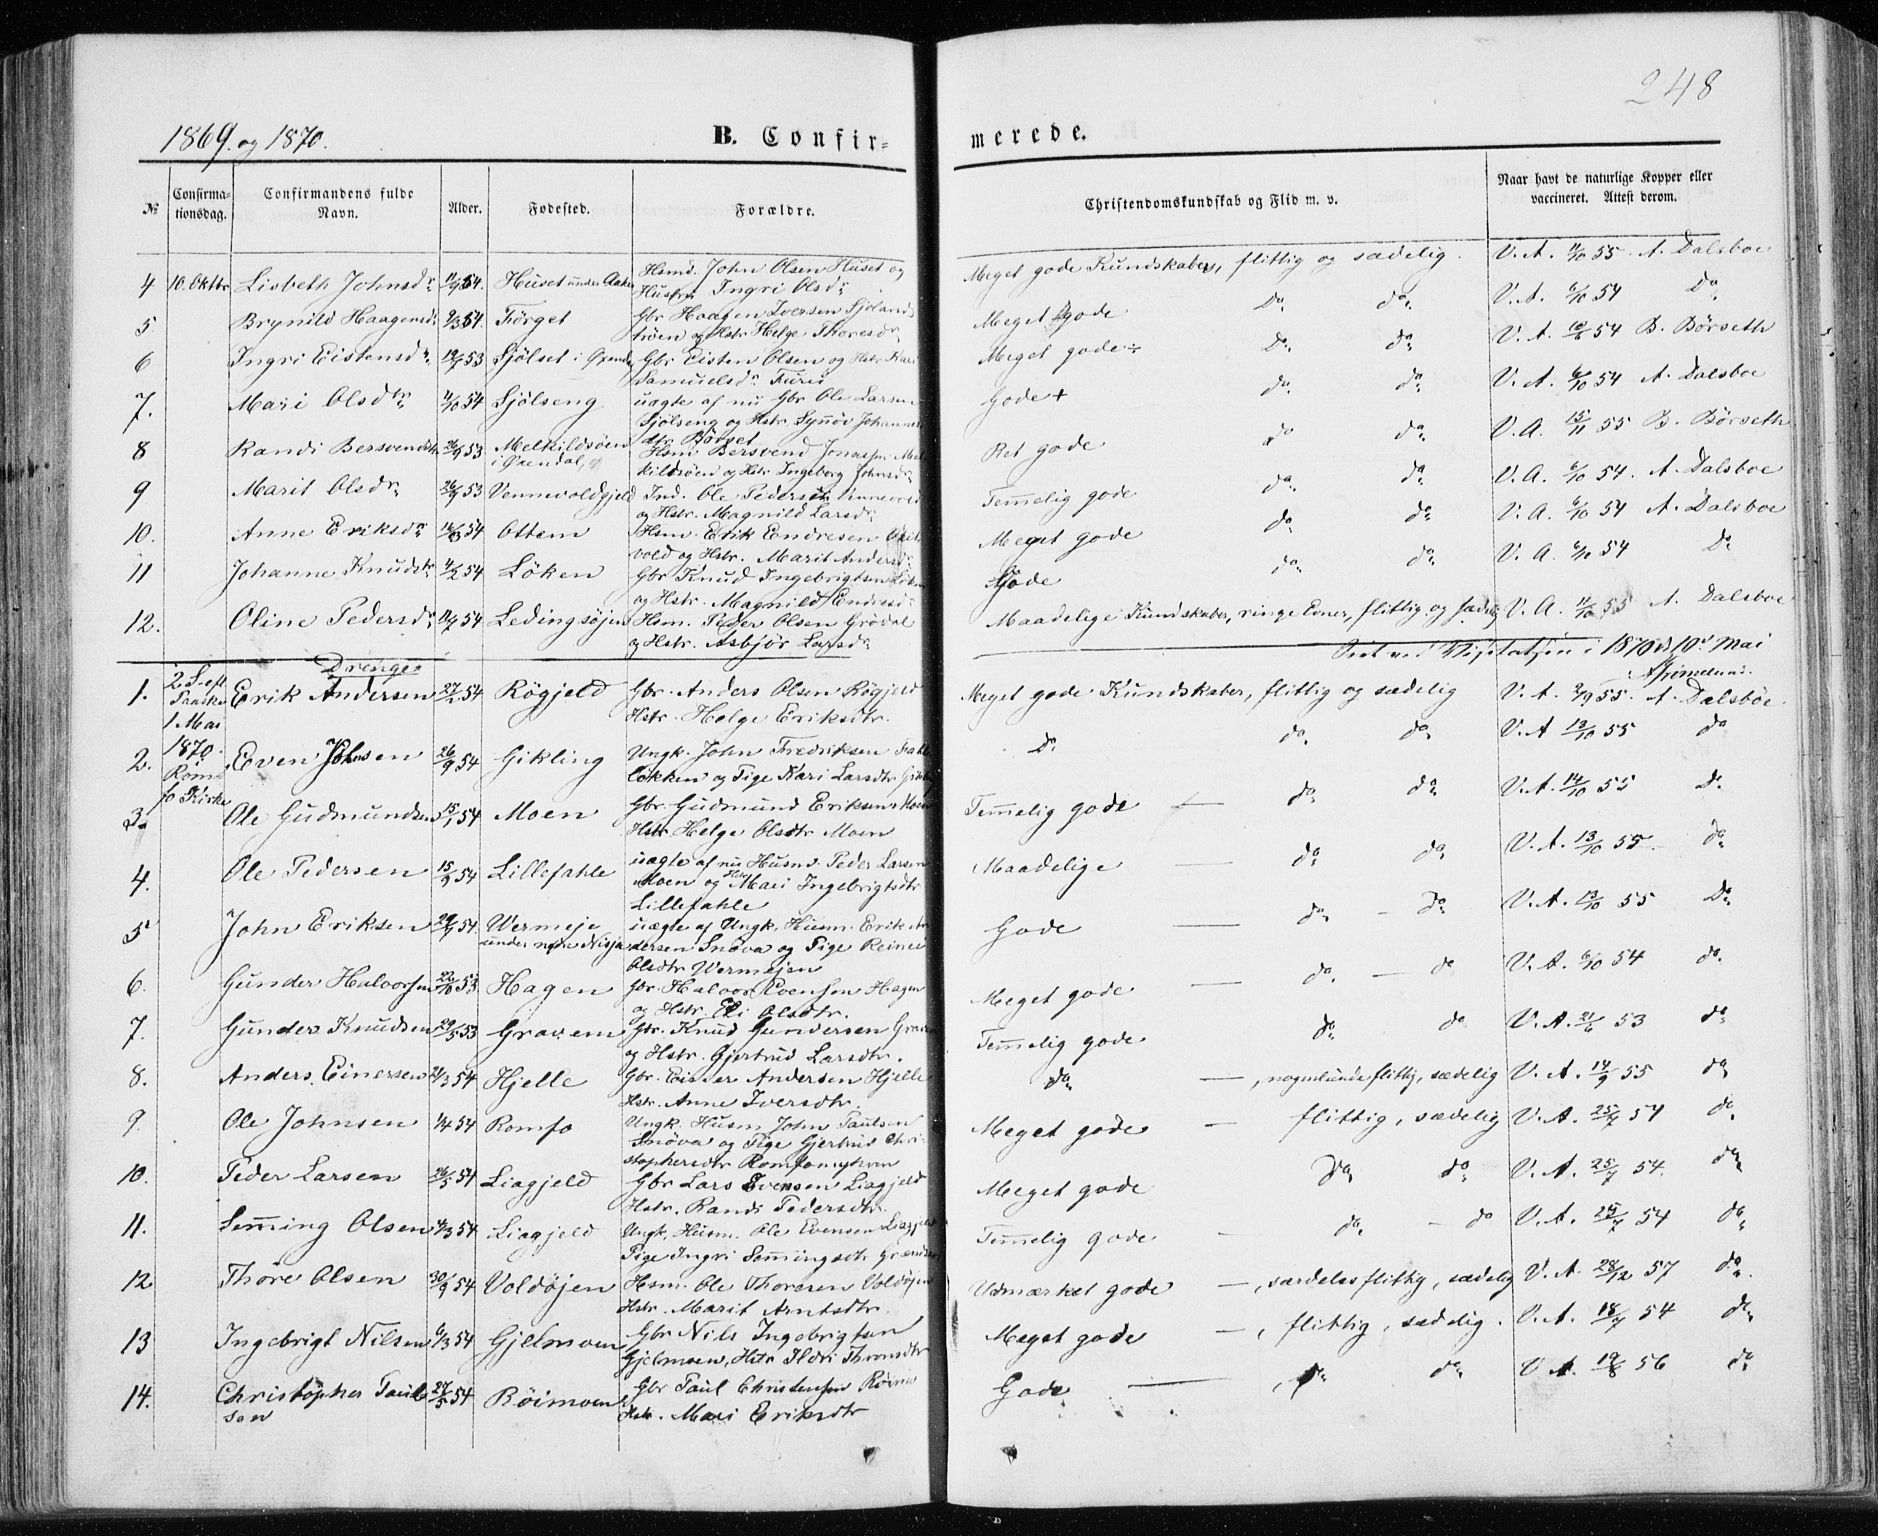 248
1869. og 1870.
B. Confir-
merede.
№
Confirmationsdag.
Confirmandens fulde Navn.
Alder.
Fødested.
Forældre.
Christendomskundskab og Flid m. v.
Naar havt de naturlige Kopper eller vaccineret. Attest derom.
4 10. Oktbr Lisbeth Johnsdr. Huset under Hsmd. John Olsen Huset og Hustru Ingri Olsdr. Meget gode Kundskaber, flittig og sædelig. V. A. 11/10 55. A. Dalsboe
5 Brynild Haagensdr. Förget Gbr Haagen Iversen og Hstr Helge Thoresdr. Meget gode Do. do. V. A. 6/10 54 Do.
6 Ingri Eistensdr. 19/7 53 Sjölset i Gbr Eisten Olsen og Hstr Kari Samuelsdr. Furu Meget gode÷ Do. do. V. A. 54 B. Börseth
7. Mari Olsdtr 11/10 54 Sjölseng uægte af nu Gbr Ole Larsen Sjölseng og Hstr. Synnöv Johannesdtr Börset Gode + do. do. V. A. 6/10 54 A. Dalsboe
8 Randi Bersvendsdtr 26/9 53 Melkildsöen i Öxendal Hsm Bersvend Jonassen Melkildsöen og Hstr Ingeborg Johnsdr. Ret gode do do. V. A. 15/11 55 B. Börseth
9 Marit Olsdr. 26/9 53 Vennevoldgjeld Ind. Ole Pedersen og Hstr. Magnild Larsdr. Temmelig gode do. do. V. A. 6/10 54. A. Dalsboe
10. Anne Eriksdr. 16/3 54 Ottem Hsm. Erik Endresen og Hstr. Marit Andersdr. Meget gode do. do. V. A. 6/10 54 A. Dalsboe
11 Johanne Knudsdr. 4/2 54 Löken Gbr Knud Ingebrigtsen Löken og Hstr. Magnild Endresdr. Gode do. do. V. A. 6/10 54 Do
12. Oline Pedersdr. 14/7 54 Ledingsöjen Hsm. Peder Olsen Grödal og Hstr. Asbjör Larsdr. Maadelige Kundskaber, ringe Evner, flittig og sædelig V. A. 11/10 55 A. Dalsboe
Seet ved Visitatsen i 1870 d 10de Mai
Drenge
1. 2 S. eft Paaske 1 Mai 1870. Romfo Kirke Erik Andersen 27/2 54 Rögjeld Gbr. Anders Olsen Rögjeld Hstr. Helge Eriksdtr. Meget gode Kundskaber, flittig og sædelig V. A. 2/9 55. A. Dalsböe
2. Even Johnsen 26/9 54 Gikling Ungk. John Fredriksen Fahlelökken og Pige Kari Larsdtr. Gikling Do. do. do. V. A 13/10 55 do
3. Ole Gudmundsen 15/1 54 Moen Gbr. Gudmund Eriksen Moen Hstr Helge Olsdtr Moen Temmelig gode — do. do. V. A. 14/10 55 Do.
4. Ole Pedersen 15/9 54 Lillefahle uægte af nu Husm. Peder Larsen Moen og Hstr Mari Ingebrigtsdtr Lillefahle Maadelige — do. do. V. A. 13/10 55. do.
5 John Eriksen 54. Wermeje under uægte af Ungk. Husm. Erik Andersen Snöva og Pige Reinei Olsdtr Wermejen Gode — do. – do. V. A. 13/10 55 Do.
6. Gunder Halvorsen 22/10 53 Hagen Gbr. Halvor Evensen Hagen og Hstr. Eli Olsdtr. Meget gode — do. — do V. A. 6/10 54 do.
7. Gunder Knudsen 29/5 53 Gravem Gbr. Knud Gundersen Gravem og Hstr. Gjertrud Larsdtr. Temmelig gode do. do V. A. 21/6 53 do.
8. Anders Einersen 54 Hjelle Gbr. Einer Andersen Hjelle Hstr. Anne Iversdtr. do. —, nogenlunde flittig, sædelig V. A. 14/9 55 do.
9. Ole Johnsen 1/4 54 Romfo Ungk. Husm John Paulsen Snöva og Pige Gjertrud Christophersdtr Romfomyhren Meget gode — flittig, sædelig V. A. 25/7 54 do.
10. Peder Larsen 26/5 54 Liagjeld Gbr Lars Evensen Liagjeld Hstr. Randi Pedersdtr. Meget gode Do. do. V. A. 25/7 54. do.
11. Semming Olsen 4/3 54 Liagjeld Ungk. Husm. Ole Evensen Liagjeld Pige Ingri Semmingsdtr Temmelig gode — do. – do V. A. 25/7 54 do.
12 Thore Olsen 30/9 54 Voldöjen Hsm. Ole Thoresen Voldöjen Hstr. Marit Arntsdtr. Udmærket gode —, særdeles flittig, sædelig V. A. 28/12 57 do.
13 Ingebrigt Nilsen 6/3 54 Gjelmoen Gbr Nils Ingebrigtsen Gjelmoen, Hstr Ildri Thronsdtr Meget gode —, flittig, sædelig. V. A. 18/7 54 do.
14. Christopher Paulsen 27/5 54 Röimoen Gbr Paul Christensen Röimo Hstr. Mari Eriksdtr Gode —, do. do. V A. 19/8 56 do.